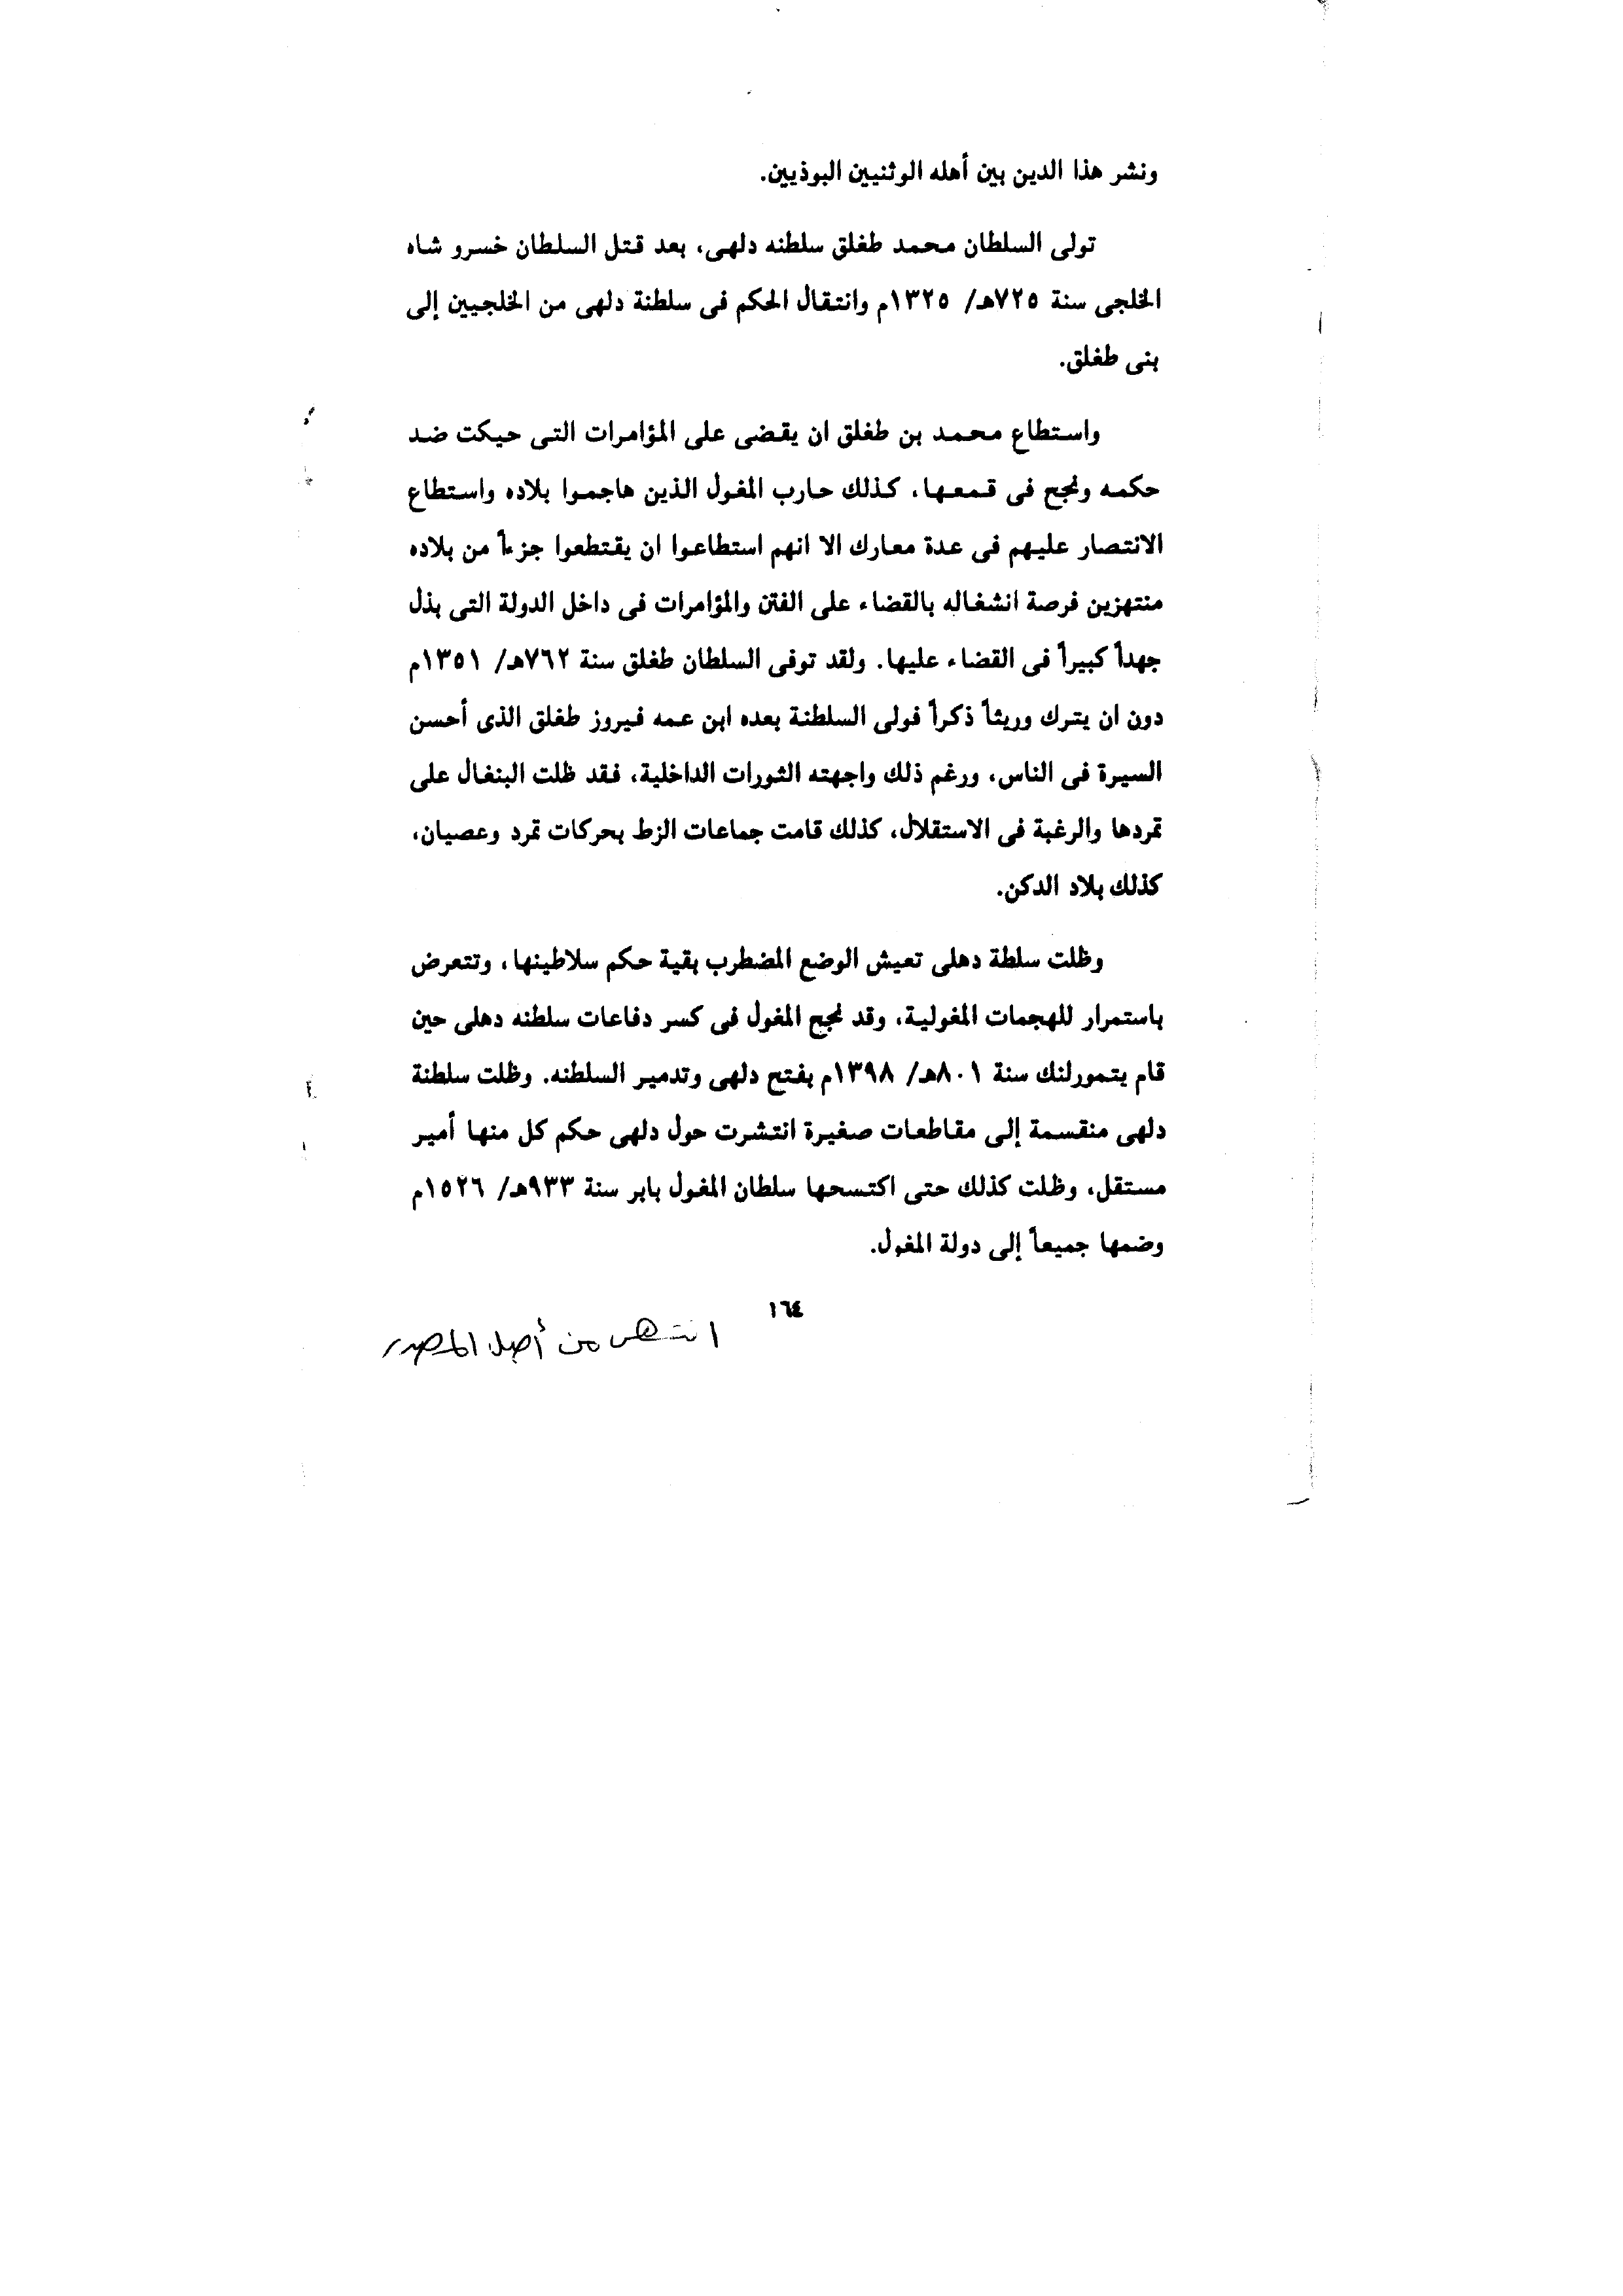 ونشر هذا الدين بين أهله الوثنيين البوذيين.
تولى السلطان محمد طغلق سلطنه دلهى، بعد قتل السلطان خسرو شاه
الخلجى سنة ٧٢٥هـ/ ١٣٢٥م وانتقال الحكم فى سلطنة دلهى من الخلجيين إلى
بنى طغلق.
واستطاع محمد بن طغلق ان يقضى على المؤامرات التى حيكت ضد
حكمه ونجح فى قمعها، كذلك حارب المغول الذين هاجموا بلاده واستطاع
الانتصار عليهم فى عدة معارك الا انهم استطاعوا ان يقتطعوا جزءاً من بلاده
منتهزين فرصة انشغاله بالقضاء على الفتن والمؤامرات فى داخل الدولة التى بذل
جهداً كبيراً فى القضاء عليها. ولقد توفى السلطان طغلق سنة ٧٦٢هـ/ ١٣٥١م
دون ان يترك وريثاً ذكراً فولى السلطنة بعده ابن عمه فيروز طغلق الذى أحسن
السيرة فى الناس، ورغم ذلك واجهته الثورات الداخلية، فقد ظلت البنغال على
تمردها والرغبة فى الاستقلال، كذلك قامت جماعات الزط بحركات تمرد وعصيان،
كذلك بلاد الدكن.
وظلت سلطة دهلى تعيش الوضع المضطرب بقية حكم سلاطينها، وتتعرض
باستمرار للهجمات المغولية، وقد نجح المغول فى كسر دفاعات سلطنه دهلى حين
قام يتمورلنك سنة ٨٠١هـ/ ١٣٩٨م بفتح دلهى وتدمير السلطنه. وظلت سلطنة
دلهى منقسمة إلى مقاطعات صغيرة انتشرت حول دلهى حكم كل منها أمير
مستقل، وظلت كذلك حتى اكتسحها سلطان المغول بابر سنة ٩٣٣هـ/ ١٥٢٦م
وضمها جميعاً إلى دولة المغول.
١٦٤
انتهى من أصل المصدر